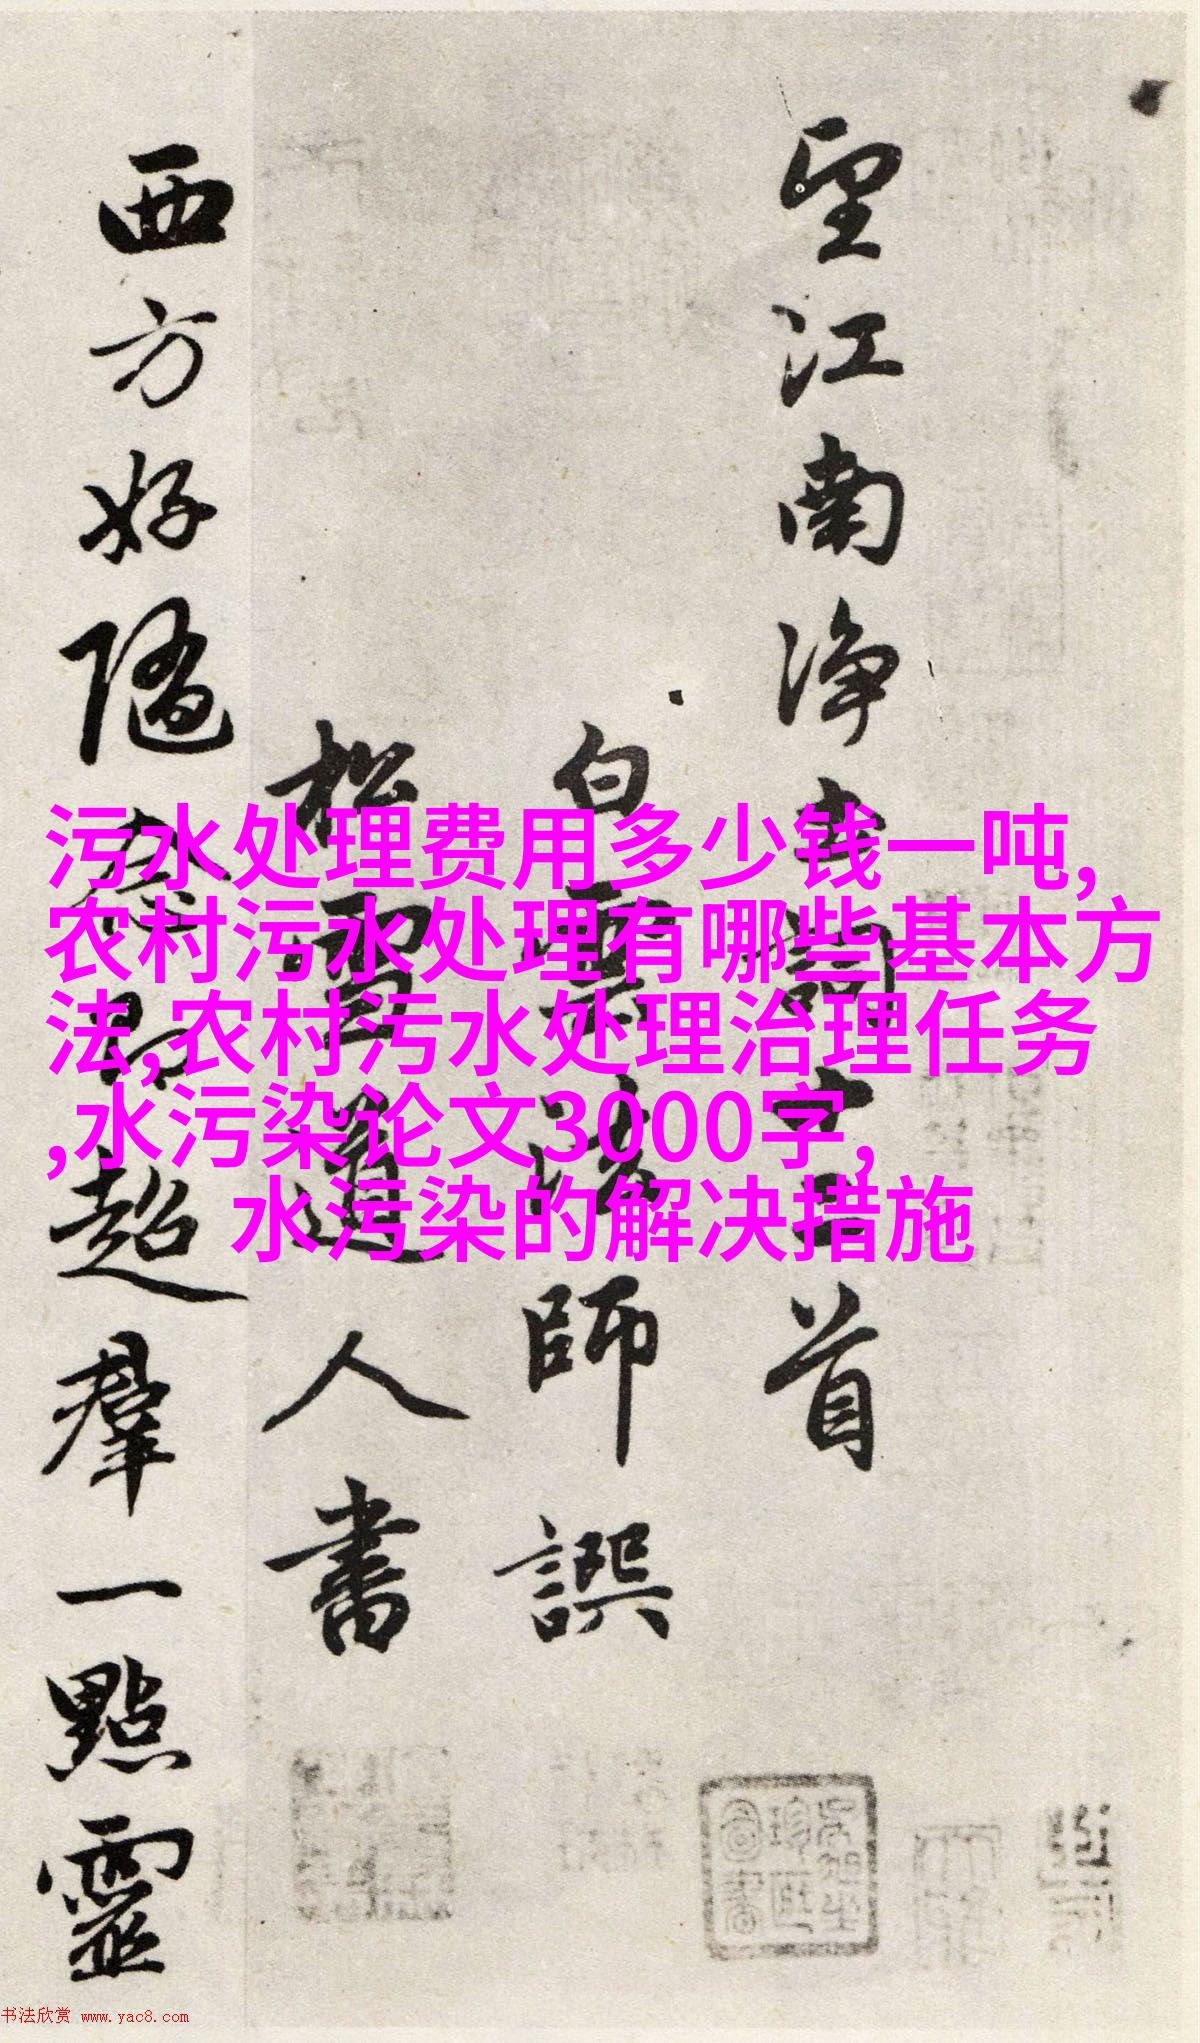 望江南净土詞十二首
白雲法師譔
松雪道人書
西方好隨念即超羣一點靈
污水处理费用多少钱一吨,
农村污水处理有哪些基本方
法,农村污水处理治理任务
,水污染论文3000字,
水污染的解决措施
书法欣赏 www.yac8.com